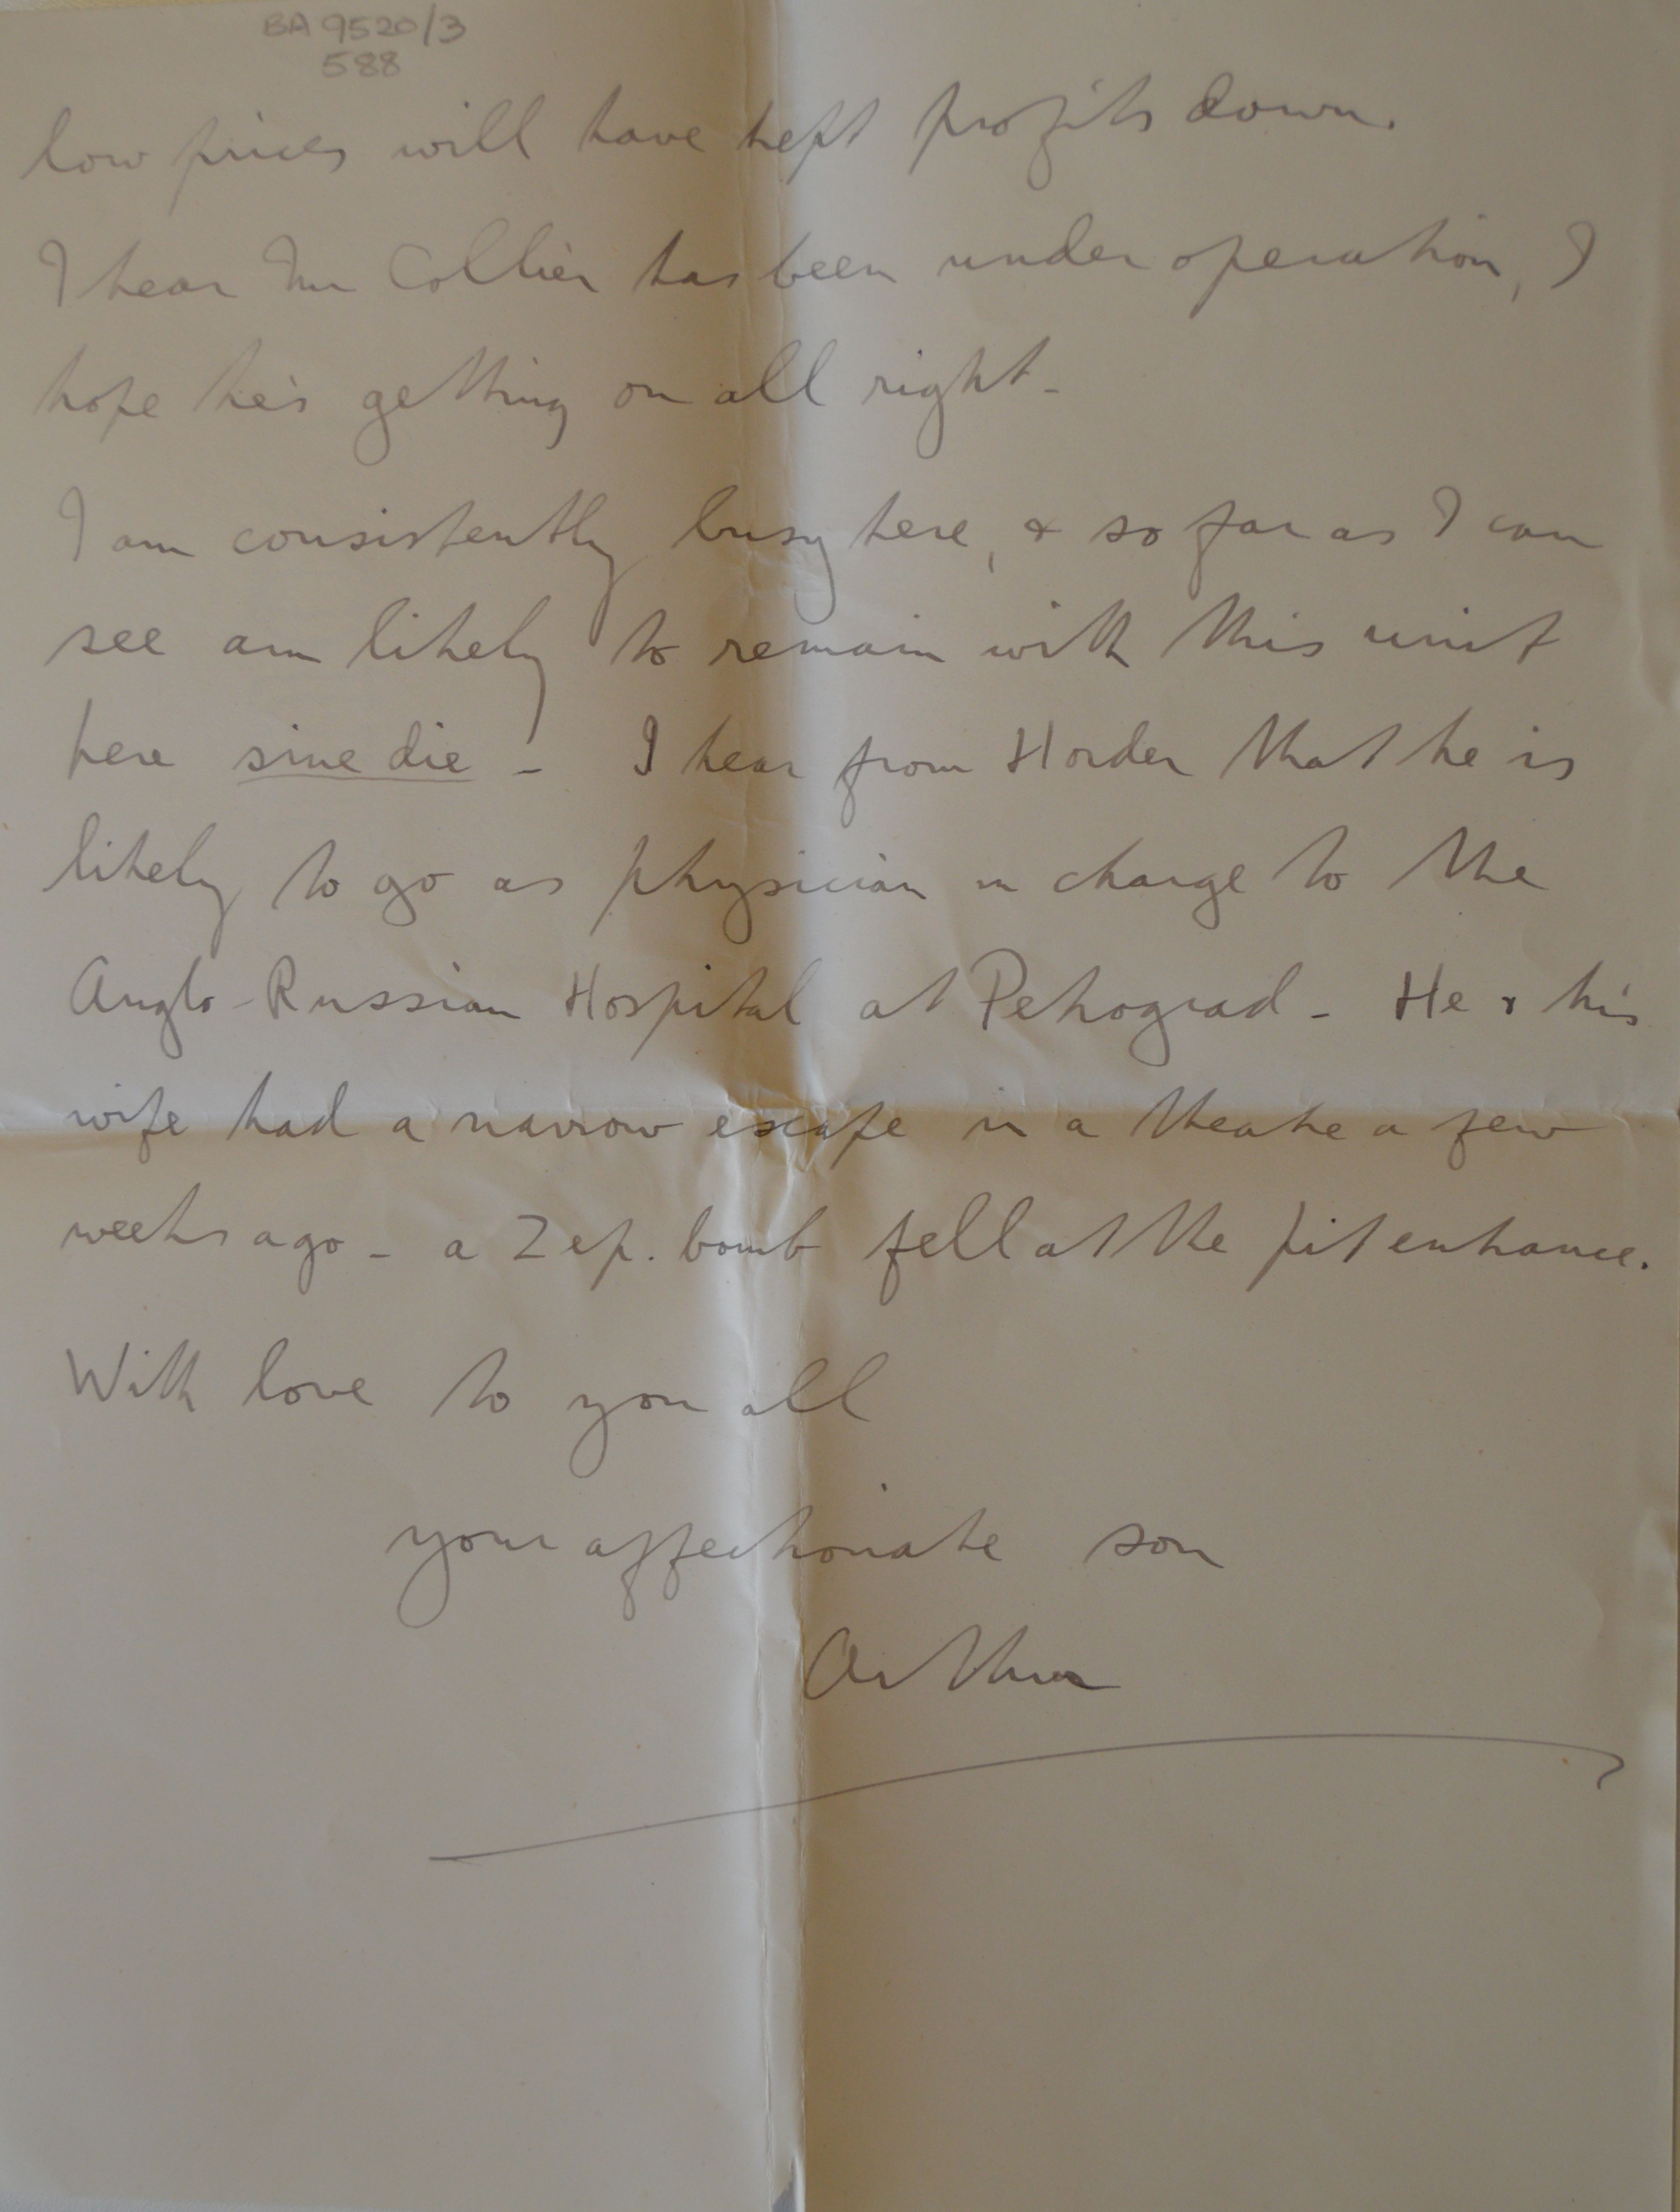 BA 9520/3
588
low prices will have kept profits down.
I hear Mr Collier has been under operation, I
hope he's getting on all right -
I am consistently busy here, & so far as I can
see am likely to remain with this unit
here sine die - I hear from Horder that he is
likely to go as physician in charge to the
Anglo-Russian Hospital at Petrograd - He & his
wife had a narrow escape in a theatre a few
weeks ago - a Zep. bomb fell at the pit entrance.
With love to you all
your affectionate son
Arthur